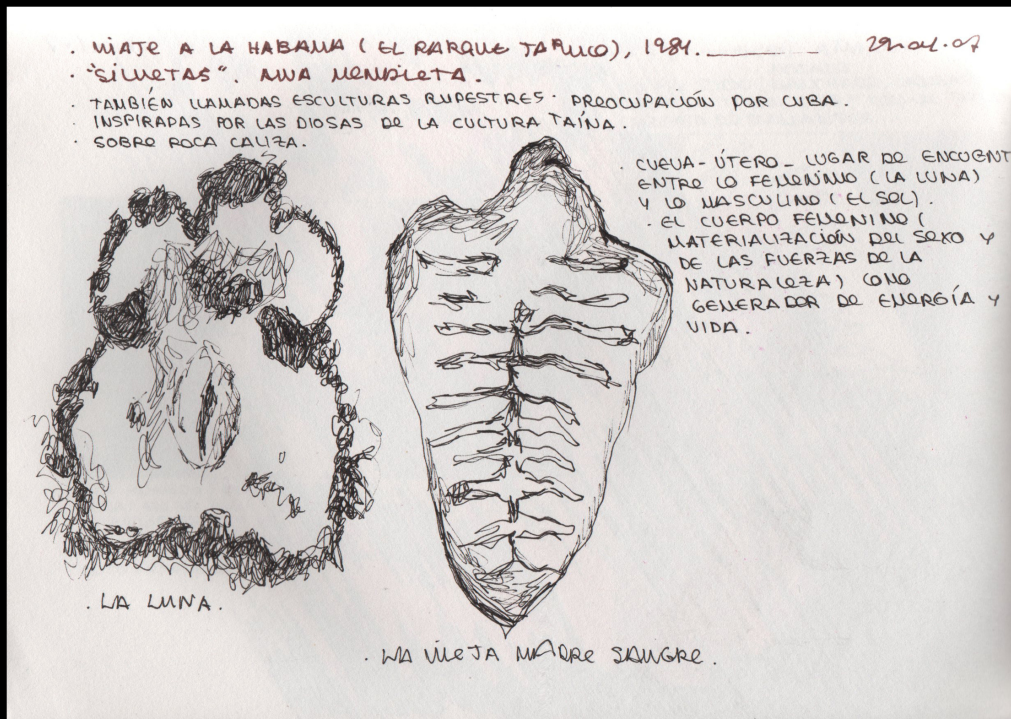 · VIAJE A LA HABANA (EL PARQUE JARUCO), 1981.
· "SILUETAS". ANA MENDIETA.
· TAMBIÉN LLAMADAS ESCULTURAS RUPESTRES. PREOCUPACIÓN POR CUBA.
· INSPIRADAS POR LAS DIOSAS DE LA CULTURA TAÍNA.
· SOBRE ROCA CALIZA.
· CUEVA-ÚTERO - LUGAR DE ENCUENT
ENTRE LO FEMENINO (LA LUNA)
Y LO MASCULINO (EL SOL).
· EL CUERPO FEMENINO (
MATERIALIZACIÓN DEL SEXO Y
DE LAS FUERZAS DE LA
NATURALEZA) COMO
GENERADOR DE ENERGÍA Y
VIDA.
· LA LUNA.
· LA VIEJA MADRE SANGRE.